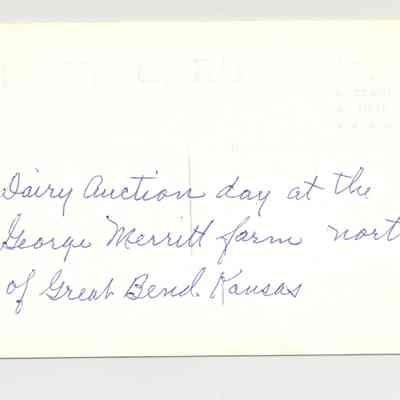 Dairy Auction day at the
George Merritt farm nort
of Great Bend. Kansas